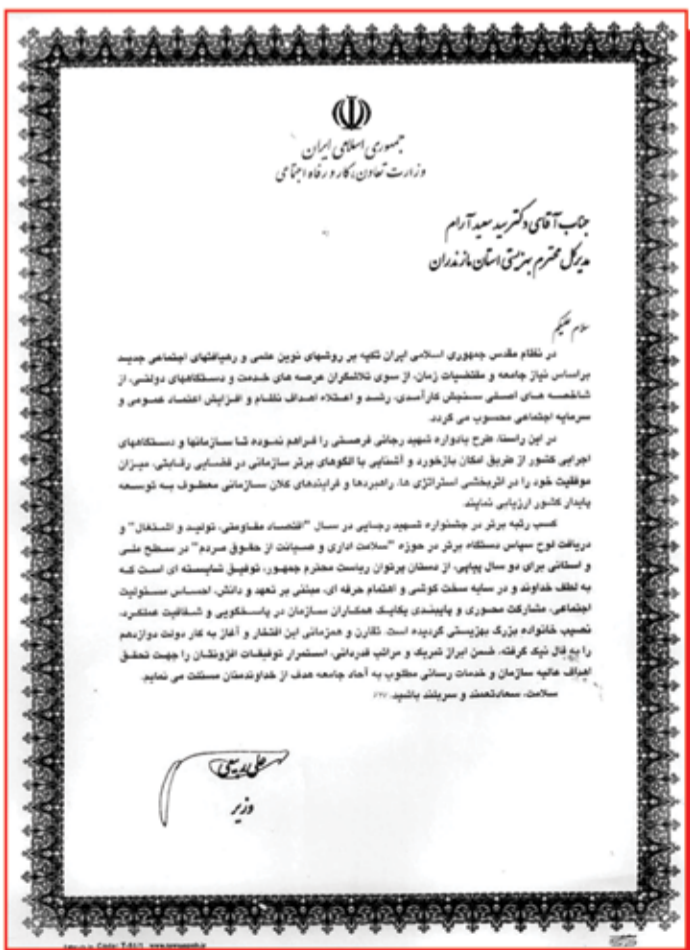 جمهوری اسلامی ایران
وزارت تعاون، کار و رفاه اجتماعی
جناب آقای دکتر سید سعید آرام
مدیرکل محترم بهزیستی استان مازندران
سلام علیکم
در نظام مقدس جمهوری اسلامی ایران تکیه بر روشهای نوین علمی و رهیافتهای اجتماعی جدید
براساس نیاز جامعه و مقتضیات زمان، از سوی تلاشگران عرصه های خدمت و دستگاههای دولتی، از
شاخصه های اصلی سنجش کارآمدی، رشد و اعتلاء اهداف نظام و افزایش اعتماد عمومی و
سرمایه اجتماعی محسوب می گردد.
در این راستا، طرح یادواره شهید رجائی فرصتی را فراهم نموده تا سازمانها و دستگاههای
اجرایی کشور از طریق امکان بازخورد و آشنایی با الگوهای برتر سازمانی در فضایی رقابتی، میزان
موفقیت خود را در اثربخشی استراتژی ها، راهبردها و فرایندهای کلان سازمانی معطوف به توسعه
پایدار کشور ارزیابی نمایند.
کسب رتبه برتر در جشنواره شهید رجایی در سال "اقتصاد مقاومتی، تولید و اشتغال" و
دریافت لوح سپاس دستگاه برتر در حوزه "سلامت اداری و صیانت از حقوق مردم" در سطح ملی
و استانی برای دو سال پیاپی، از دستان پرتوان ریاست محترم جمهور، توفیق شایسته ای است که
به لطف خداوند و در سایه سخت کوشی و اهتمام حرفه ای، مبتنی بر تعهد و دانش، احساس مسئولیت
اجتماعی، مشارکت محوری و پایبندی یکایک همکاران سازمان در پاسخگویی و شفافیت عملکرد،
نصیب خانواده بزرگ بهزیستی گردیده است. تقارن و همزمانی این افتخار و آغاز به کار دولت دوازدهم
را به فال نیک گرفته، ضمن ابراز تبریک و مراتب قدردانی، استمرار توفیقات افزونتان را جهت تحقق
اهداف عالیه سازمان و خدمات رسانی مطلوب به آحاد جامعه هدف از خداوندمنان مسئلت می نمایم.
سلامت، سعادتمند و سربلند باشید.
علی ربیعی
وزیر